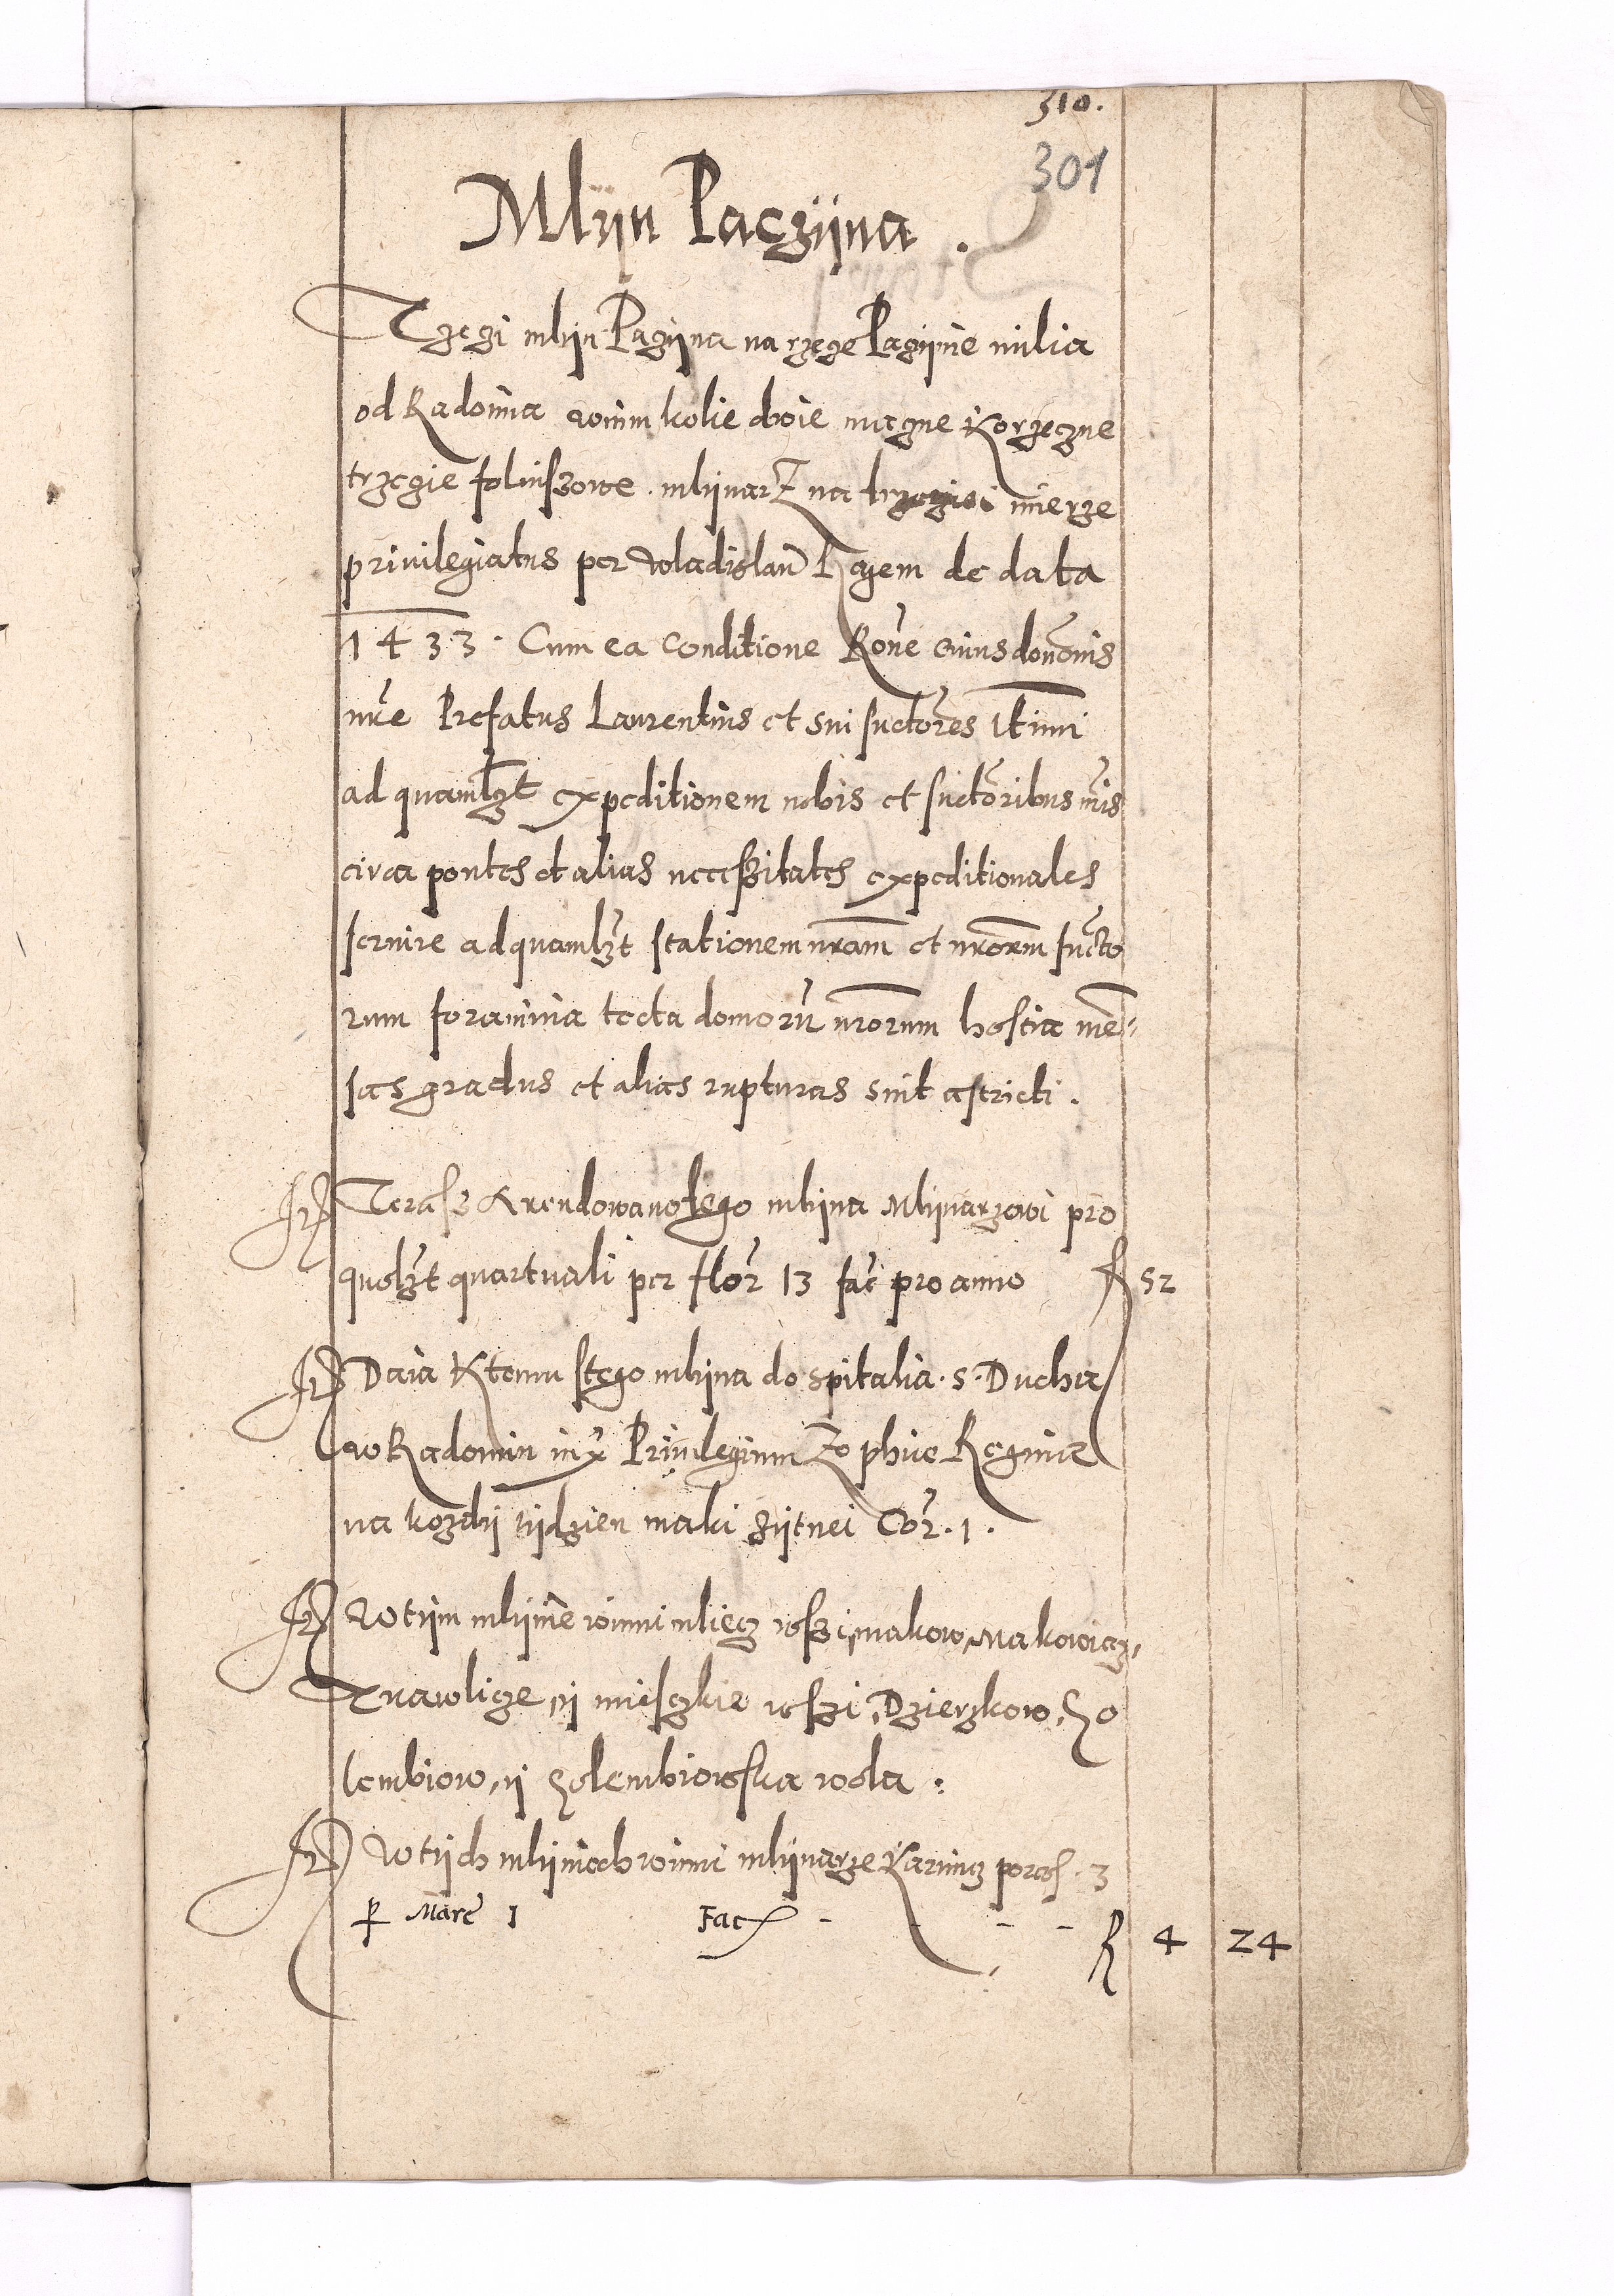 310.
301
Mlyn Paczÿna .
Trzeczi mlÿn Paczÿna na rzece Paczÿnie milia
od Radomia wnim kolie dwie maczne Korzeczne
trzecie foliuszowe . mlÿnarz na trzeciei mierze
priuilegiatus per Wladislaū Regem de data
1433 . Cum ea conditione Rōne cuius donōnis
nr̃e Prefatus Laurentius et sui suctōres ltimi
ad quamlzt expeditionem nobis et suctōribus nr̃is
circa pontes et alias necessitates expeditionales
seruire ad quamlzt stationem nr̃am et nr̃orum sucto
rum foramina tecta domorū nr̃orum hostia me=
sas gradus et alias rupturas sint astricti .
It Terasz Arendowano tego mlÿna Mlÿnarzowi pro
quolzt quartuali per flor 13 fac̃ pro anno f 52
It Daia Ktemu stego mlÿna do spitalia . S . Ducha
w Radomiu iux Priuilegium Zophiae Reginae
na kozdÿ tÿdzien maki zÿtnei Cor . 1 .
It W tÿm mlÿnie winni mliecz wszi, makow, Makowiecz,
Trawlicze, ÿ mieszkie wszi, Dzierzkow, Go
lembiow, ÿ Golembiowska wola .
It W tÿch mlÿnach winni mlÿnarze Karmicz porcos . 3
P Marc 1 Fac - - - - f 4 24